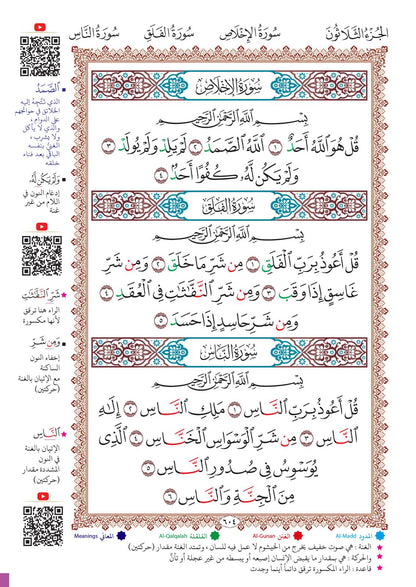 الجُزءُ الثَّلاثُونَ سُورَةُ الإِخْلَاصِ سُورَةُ الفَلَقِ سُورَةُ النَّاسِ
سُورَةُ الإِخْلَاصِ
بِسْمِ ٱللَّهِ ٱلرَّحْمَٰنِ ٱلرَّحِيمِ
قُلْ هُوَ ٱللَّهُ أَحَدٌ ١ ٱللَّهُ ٱلصَّمَدُ ٢ لَمْ يَلِدْ وَلَمْ يُولَدْ ٣
وَلَمْ يَكُن لَّهُۥ كُفُوًا أَحَدٌۢ ٤
سُورَةُ الفَلَقِ
بِسْمِ ٱللَّهِ ٱلرَّحْمَٰنِ ٱلرَّحِيمِ
قُلْ أَعُوذُ بِرَبِّ ٱلْفَلَقِ ١ مِن شَرِّ مَا خَلَقَ ٢ وَمِن شَرِّ
غَاسِقٍ إِذَا وَقَبَ ٣ وَمِن شَرِّ ٱلنَّفَّٰثَٰتِ فِى ٱلْعُقَدِ ٤
وَمِن شَرِّ حَاسِدٍ إِذَا حَسَدَ ٥
سُورَةُ النَّاسِ
بِسْمِ ٱللَّهِ ٱلرَّحْمَٰنِ ٱلرَّحِيمِ
قُلْ أَعُوذُ بِرَبِّ ٱلنَّاسِ ١ مَلِكِ ٱلنَّاسِ ٢ إِلَٰهِ
ٱلنَّاسِ ٣ مِن شَرِّ ٱلْوَسْوَاسِ ٱلْخَنَّاسِ ٤ ٱلَّذِى
يُوَسْوِسُ فِى صُدُورِ ٱلنَّاسِ ٥
مِنَ ٱلْجِنَّةِ وَٱلنَّاسِ ٦
٦٠٤
ٱلصَّمَدُ
الذي تتجه إليه
الخلائق في حوائجهم
على الدوام،
والذي لا يأكل
ولا يشرب،
الغني بنفسه
الباقي بعد فناء
خلقه
وَلَمْ يَكُن لَّهُۥ
إدغام النون في
اللام من غير
غنة
شَرِّ ٱلنَّفَّٰثَٰتِ
الراء هنا ترقق
لأنها مكسورة
وَمِن شَرِّ
إخفاء النون
الساكنة
مع الإتيان بالغنة
(حركتين)
ٱلنَّاسِ
الإتيان بالغنة
في النون
المشددة مقدار
(حركتين)
المدود Al-Madd الغنن Al-Gunan القلقلة Al-Qalqalah المعاني Meanings
الغنة : هي صوت خفيف يخرج من الخيشوم لا عمل فيه للسان ، وتمتد الغنة مقدار (حركتين)
والحركة : هي بمقدار ما يقبض الإنسان إصبعه أو يبسطه من غير عجلة أو تأنٍّ
قاعدة : الراء المكسورة ترقق دائماً أينما وجدت